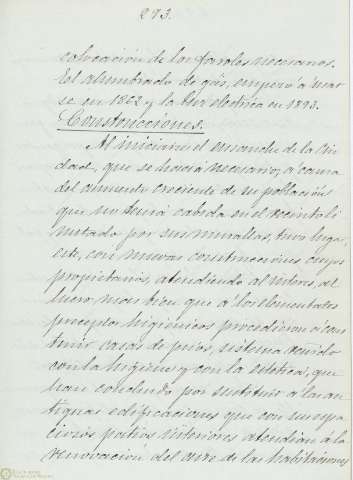 293.
colocación de los faroles necesarios.
El alumbrado de gás, empezó á usar
se en 1862 y la luz electrica en 1893.
Construcciones.
Al iniciarse el ensanche de la Ciu
dad, que se hacia necesario, á causa
del aumento creciente de su población
que no tenia cabida en el recinto li
mitado por sus murallas, tuvo lugar
este, con nuevas construcciones cuyos
propietarios, atendiendo al interes del
lucro, mas bien que á los elementales
preceptos higiénicos procedieron á cons
truir casas de pisos, sistema reñido
con la higiene y con la estética, que
han concluido por sustituir á las an
tiguas edificaciones que con sus espa
ciosos patios interiores atendian á la
renovación del aire de las habitaciones